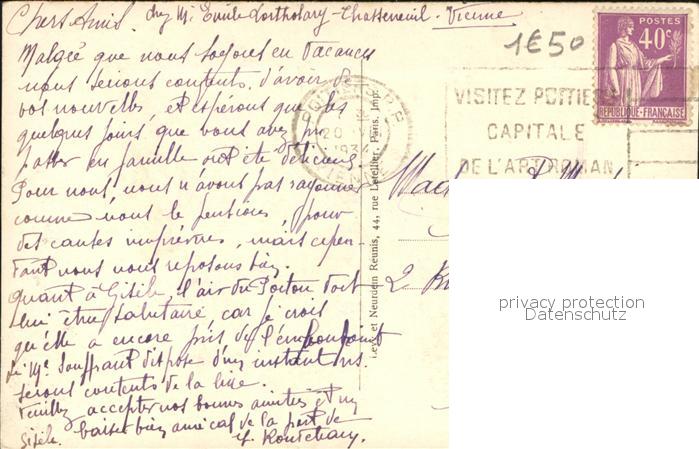 Chers Amis. chez Mr Emile Lortholary - Chasseneuil - Vienne
Malgré que nous soyons en Vacances
nous serions contents d'avoir de
vos nouvelles, et espérons que les
quelques jours que vous avez pu
passer en famille ont été délicieux
Pour nous, nous n'avons pas rayonner
comme nous le pensions, pour
des causes imprévues, mais cepen-
dant nous nous reposons bien.
Quant à Gisèle, l'air du Poitou doit
lui être salutaire car je crois
qu'elle a encore pris de l'embonpoint
Si Mr Souffrant dispose d'un instant ns.
serons contents de la lire.
Veuillez accepter nos bonnes amitiés et un
baiser bien amical de la part de
Gisèle.
1€50
POSTES
40c
REPUBLIQUE-FRANÇAISE
20
1934
VISITEZ POITIERS
CAPITALE
DE L'ART ROMAN
Levy et Neurdein Reunis, 44, rue Letellier, Paris, Imp.
2
privacy protection
Datenschutz